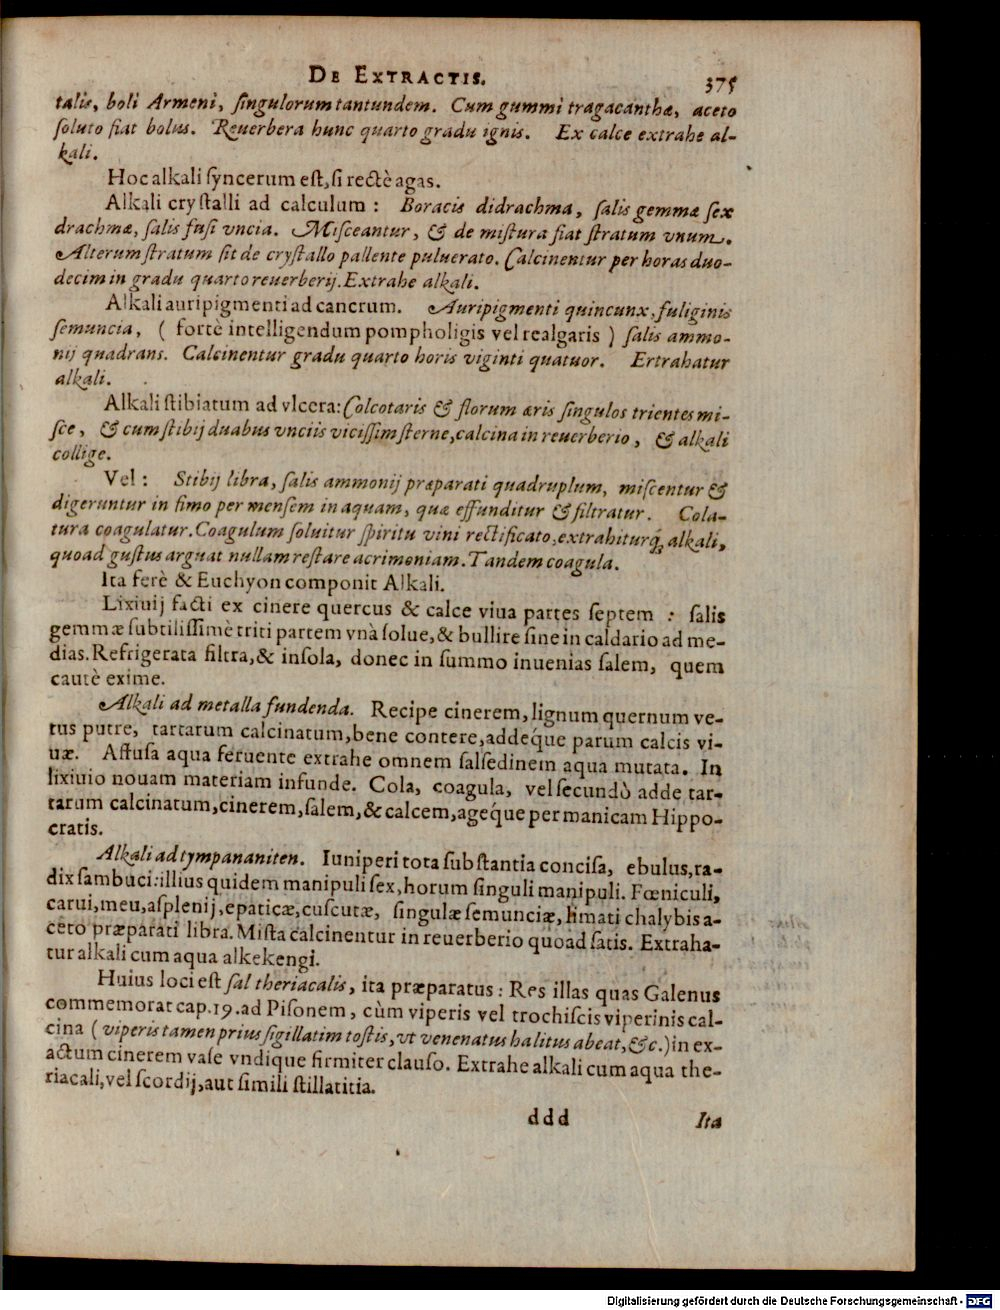 DE EXTRACTIS. 375
talis, boli Armeni, ſingulorum tantundem. Cum gummi tragacanthæ, aceto
ſoluto fiat bolus. Reuerbera hunc quarto gradu ignis. Ex calce extrahe al-
kali.
Hoc alkali ſyncerum eſt, ſi rectè agas.
Alkali cryſtalli ad calculum : Boracis didrachma, ſalis gemmæ ſex
drachmæ, ſalis fuſi vncia. Miſceantur, & de miſtura fiat ſtratum vnum.
Alterum ſtratum ſit de cryſtallo pallente puluerato. Calcinentur per horas duo-
decim in gradu quarto reuerberij. Extrahe alkali.
Alkali auripigmenti ad cancrum. Auripigmenti quincunx, fuliginis
ſemuncia, ( fortè intelligendum pompholigis vel realgaris ) ſalis ammo-
nij quadrans. Calcinentur gradu quarto horis viginti quatuor. Ertrahatur
alkali.
Alkali ſtibiatum ad vlcera: Colcotaris & florum æris ſingulos trientes mi-
ſce, & cum ſtibij duabus vnciis viciſſim ſterne, calcina in reuerberio, & alkali
collige.
Vel : Stibij libra, ſalis ammonij præparati quadruplum, miſcentur &
digeruntur in fimo per menſem in aquam, quæ effunditur & filtratur. Cola-
tura coagulatur. Coagulum ſoluitur ſpiritu vini rectificato, extrahiturq́; alkali,
quoad guſtus arguat nullam reſtare acrimoniam. Tandem coagula.
Ita ferè & Euchyon componit Alkali.
Lixiuij facti ex cinere quercus & calce viua partes ſeptem : ſalis
gemmæ ſubtiliſſimè triti partem vnà ſolue, & bullire ſine in caldario ad me-
dias. Refrigerata filtra, & inſola, donec in ſummo inuenias ſalem, quem
cautè exime.
Alkali ad metalla fundenda. Recipe cinerem, lignum quernum ve-
tus putre, tartarum calcinatum, bene contere, addeq́ue parum calcis vi-
uæ. Affuſa aqua feruente extrahe omnem ſalſedinem aqua mutata. In
lixiuio nouam materiam infunde. Cola, coagula, vel ſecundò adde tar-
tarum calcinatum, cinerem, ſalem, & calcem, ageq́ue per manicam Hippo-
cratis.
Alkali ad tympananiten. Iuniperi tota ſubſtantia conciſa, ebulus, ra-
dix ſambuci: illius quidem manipuli ſex, horum ſinguli manipuli. Fœniculi,
carui, meu, aſplenij, epaticæ, cuſcutæ, ſingulæ ſemunciæ, limati chalybis a-
ceto præparati libra. Miſta calcinentur in reuerberio quoad ſatis. Extraha-
tur alkali cum aqua alkekengi.
Huius loci eſt ſal theriacalis, ita præparatus : Res illas quas Galenus
commemorat cap. 19. ad Piſonem, cùm viperis vel trochiſcis viperinis cal-
cina ( viperis tamen prius ſigillatim toſtis, vt venenatus halitus abeat, &c.) in ex-
actum cinerem vaſe vndique firmiter clauſo. Extrahe alkali cum aqua the-
riacali, vel ſcordij, aut ſimili ſtillatitia.
ddd Ita
Digitalisierung gefördert durch die Deutsche Forschungsgemeinschaft - DFG